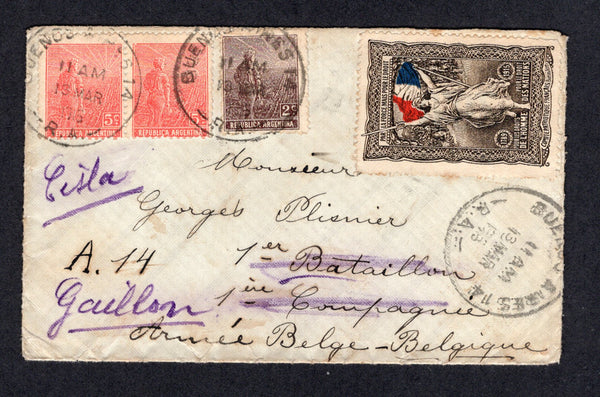 BUENOS AIRES 14
11 AM
13 MAR
R.A.
5c
REPUBLICA ARGENTINA
REPUBLICA ARGENTINA
2c
REPUBLICA ARGENTINA
BUENOS AIRES 14
11 AM
13 MAR
DE L'HOMME
DES NATIONS
Monsieur
Georges Plisnier
A. 14 1er Bataillon
Gaillon 1ère Compagnie
Armée Belge - Belgique
BUENOS AIRES 14
11 AM
13 MAR
R.A.